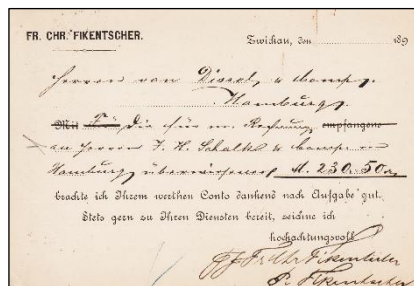 FR. CHR. FIKENTSCHER.
Zwickau, den 189
Herren van Dissel & Comp.
Hamburg.
Mit Die für m. Rechnung empfangene
an Herren J. H. & Comp. in
Hamburg überwiesenen M. 230.50
brachte ich Ihrem werthen Conto dankend nach Aufgabe gut.
Stets gern zu Ihren Diensten bereit, zeichne ich
hochachtungsvoll
Fr. Chr. Fikentscher
Fikentscher